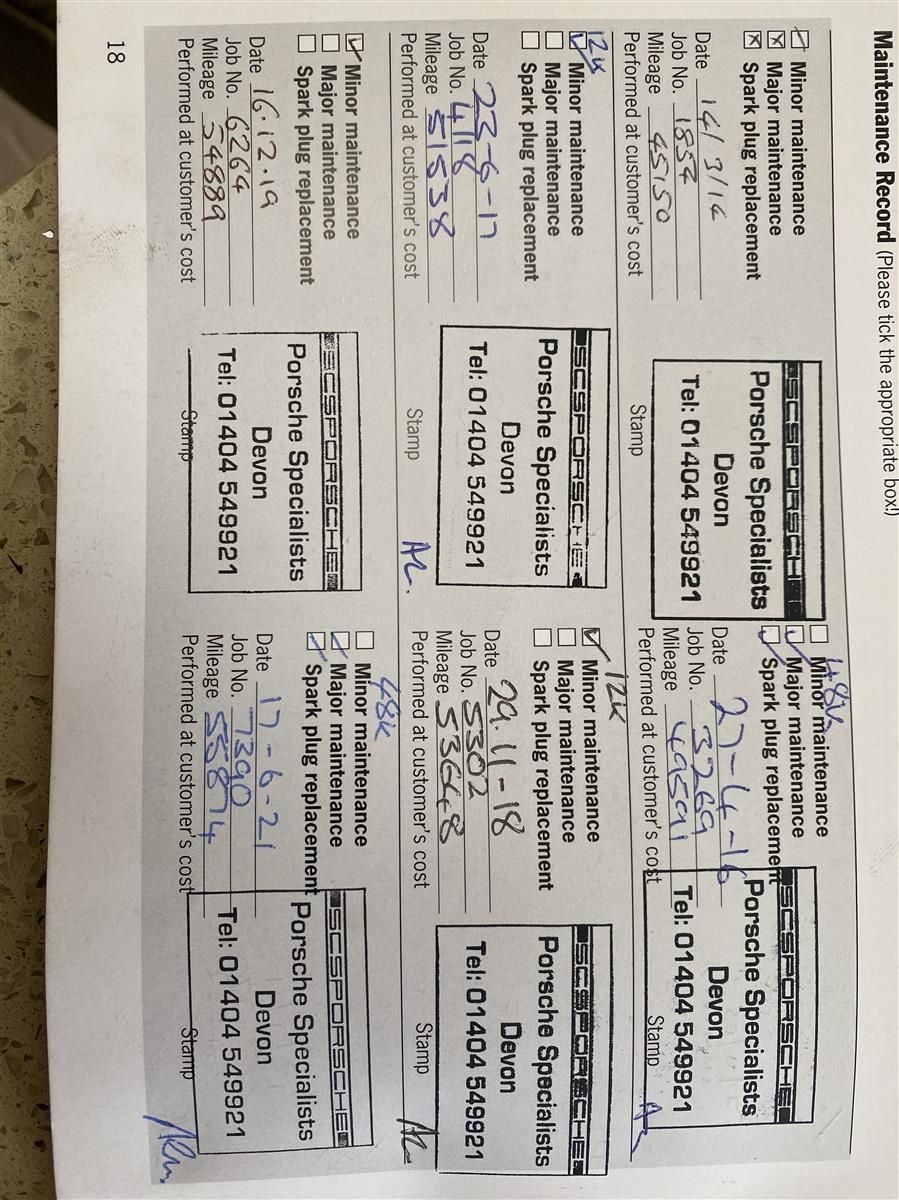 Maintenance Record (Please tick the appropriate box!)
Minor maintenance
Major maintenance
Spark plug replacement
Date 14/3/14
Job No. 1857
Mileage 45150
Performed at customer's cost
SCSPORSCHE
Porsche Specialists
Devon
Tel: 01404 549921
Stamp
48k
Minor maintenance
Major maintenance
Spark plug replacement
Date 27-4-16
Job No. 3269
Mileage 49591
Performed at customer's cost
SCSPORSCHE
Porsche Specialists
Devon
Tel: 01404 549921
Stamp
12k
Minor maintenance
Major maintenance
Spark plug replacement
Date 23-6-17
Job No. 4118
Mileage 51538
Performed at customer's cost
SCSPORSCHE
Porsche Specialists
Devon
Tel: 01404 549921
Stamp
12k
Minor maintenance
Major maintenance
Spark plug replacement
Date 29.11-18
Job No. 5302
Mileage 53648
Performed at customer's cost
SCSPORSCHE
Porsche Specialists
Devon
Tel: 01404 549921
Stamp
Minor maintenance
Major maintenance
Spark plug replacement
Date 16.12.19
Job No. 6264
Mileage 54889
Performed at customer's cost
SCSPORSCHE
Porsche Specialists
Devon
Tel: 01404 549921
Stamp
48k
Minor maintenance
Major maintenance
Spark plug replacement
Date 17-6-21
Job No. 7390
Mileage 55874
Performed at customer's cost
SCSPORSCHE
Porsche Specialists
Devon
Tel: 01404 549921
Stamp
18